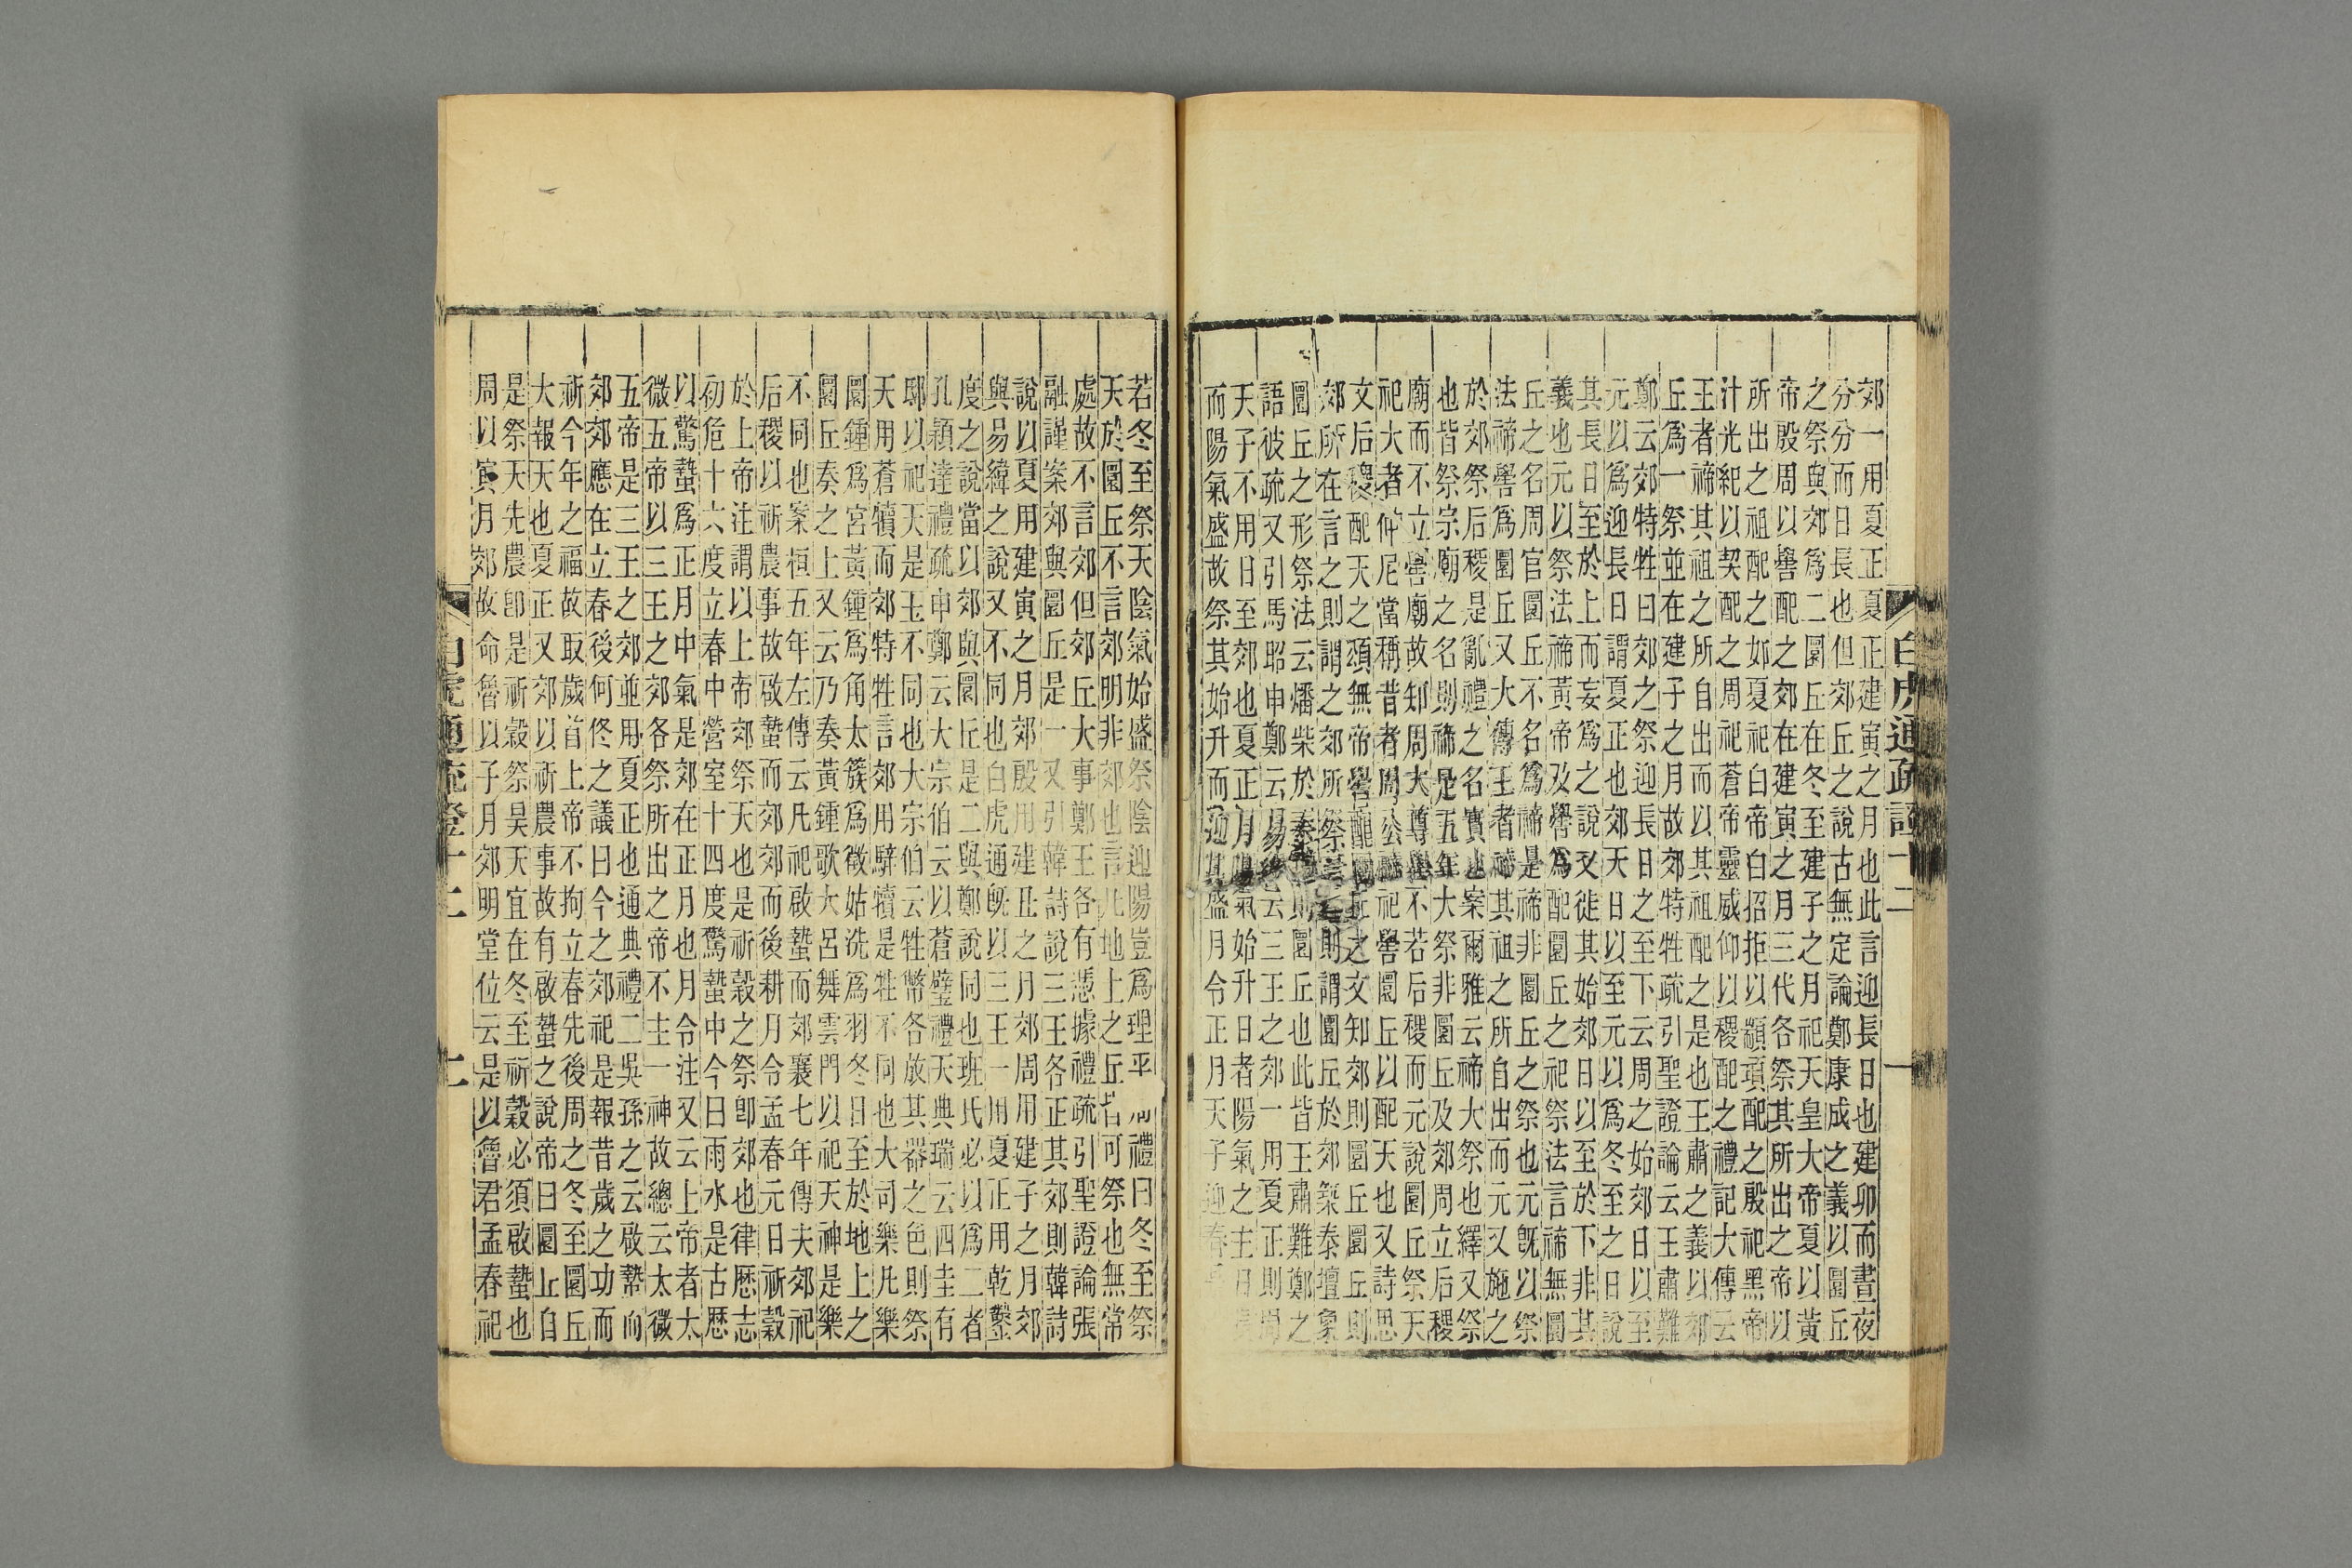 白虎通疏證十二
一
郊一用夏正夏正建寅之月也此言迎長日也建卯而晝夜
分分而日長也但郊丘之說古無定論鄭康成之義以圜丘
之祭與郊爲二圜丘在冬至建子之月祀天皇大帝夏以黃
帝殷周以嚳配之郊在建寅之月三代各祭其所出之帝以
所出之祖配之如夏祀白帝白招拒以顓頊配之殷祀黑帝
汁光紀以契配之周祀蒼帝靈威仰以稷配之禮記大傳云
王者禘其祖之所自出而以其祖配之是也王肅之義以郊
丘爲一祭並在建子之月故郊特牲疏引聖證論云王肅難
鄭云郊特牲曰郊之祭迎長日之至下云周之始郊日以至
元以爲迎長日謂夏正也郊天日以至元以爲冬至之日說
其長日至於上而妄爲之說又徙其始郊日以至於下非其
義也元以祭法禘黃帝及嚳爲配圜丘之祀祭法言禘無圜
丘之名周官圜丘不名爲禘是禘非圜丘之祭也元旣以祭
法禘嚳爲圜丘又大傳王者禘其祖之所自出而元又施之
於郊祭后稷是亂禮之名實也案爾雅云禘大祭也繹又祭
也皆祭宗廟之名則禘是五年大祭非圜丘及郊周立后稷
廟而不立嚳廟故知周大尊嚳不若后稷而元說圜丘祭天
祀大者仲尼當稱昔者周公禘祀嚳圜丘以配天也又詩思
文后稷配天之頌無帝嚳配圜丘之文知郊則圜丘圜丘則
郊所在言之則謂之郊所祭言之則謂圜丘於郊築泰壇象
圜丘之形祭法云燔柴於泰則圜丘也此皆王肅難鄭之
語彼疏又引馬昭申鄭云易緯云三王之郊一用夏正則周
天子不用日至郊也夏正月陽氣始升日者陽氣之主日
而陽氣盛故祭其始升而迎其盛月令正月天子迎春
若冬至祭天陰氣始盛祭陰迎陽豈爲理乎周禮曰冬至祭
天於圜丘不言郊明非郊也言凡地上之丘皆可祭也無常
處故不言郊但郊丘大事鄭王各有憑據禮疏引聖證論張
融謹案郊與圜丘是一又引韓詩說三王各正其郊則韓詩
說以夏用建寅之月郊殷用建丑之月郊周用建子之月郊
與易緯之說又不同也白虎通旣以三王一用夏正用乾鑿
度之說當以郊與圜丘是二與鄭說同也班氏必以爲二者
孔穎達禮疏申鄭云大宗伯云以蒼璧禮天典瑞云四圭有
邸以祀天是玉不同也大宗伯云牲幣各放其器之色則祭
天用蒼犢而郊特牲言郊用騂犢是牲不同也大司樂凡樂
圜鍾爲宮黃鍾爲角太簇爲徵姑洗爲羽冬日至於地上之
圜丘奏之上又云乃奏黃鍾歌大呂舞雲門以祀天神是樂
不同也案桓五年左傳云凡祀啟蟄而郊襄七年傳夫郊祀
后稷以祈農事故啟蟄而郊郊而後耕月令孟春元日祈穀
於上帝注謂以上帝郊祭天也是祈穀之祭卽郊也律歷志
初危十六度立春中營室十四度驚蟄中今曰雨水是古歷
以驚蟄爲正月中氣是郊在正月也月令注又云上帝者太
微五帝以三王之郊各祭所出之帝不主一神故總云太微
五帝是三王之郊並用夏正也通典禮二吳孫之云啟蟄而
郊郊應在立春後何佟之議曰今之郊祀是報昔歲之功而
祈今年之福故取歲首上帝不拘立春先後周之冬至圜丘
大報天也夏正又郊以祈農事故有啟蟄之說帝曰圜丘自
是祭天先農卽是祈穀祭昊天宜在冬至祈穀必須啟蟄也
周以寅月郊故命魯以子月郊明堂位云是以魯君孟春祀